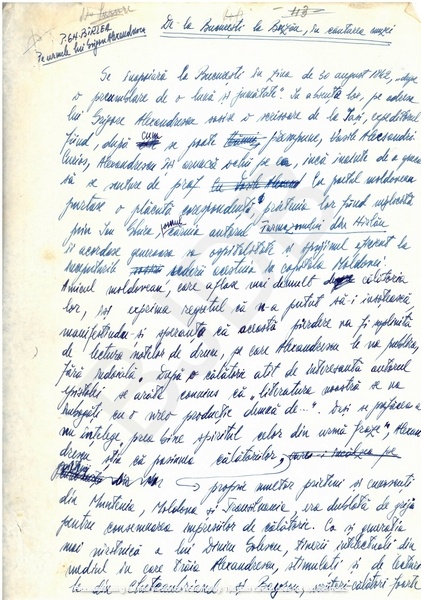 P. GH. BÎRLEA
Pe urmele lui Grigore Alexandrescu
De la Bucureşti la Buzău, în căutarea muzei
Se înapoiară la Bucureşti în ziua de 30 august 1842, „după
o preumblare de o lună şi jumătate". În absenţa lor, pe adresa
lui Grigore Alexandrescu sosise o scrisoare de la Iaşi, expeditorul
fiind, după cum se poate presupune, Vasile Alecsandri
Curios, Alexandrescu îşi aruncă ochii pe ea, încă înainte de a apuca
să se scuture de praf. Cu poetul moldovean
purtase o plăcută corespondenţă, prietenia lor fiind mijlocită
prin Ion Ghica, căruia autorul Farmazonului din Hîrlău
îi acordase generoasa sa ospitalitate şi sprijinul aferent la
şederii acestuia în capitala Moldovei.
Amicul moldovean, care aflase mai demult călătoria
lor, îşi exprima regretul că n-a putut să-i însoţească
manifestîndu-şi speranţa că această pierdere va fi suplinită
de lectura notelor de drum, pe care Alexandrescu le va publica,
fără îndoială. După o călătorie atît de interesantă autorul
epistolei se arăta convins că „literatura noastră se va
îmbogăţi cu o nouă producţie demnă de...". Deşi se prefăcea a
nu înţelege prea bine spiritul celor din urmă fraze", Alexan-
drescu ştia că pasiunea călătoriilor,
proprie multor prieteni şi cunoscuţi
din Muntenia, Moldova şi Transilvania, era dublată de grija
pentru consemnarea impresiilor de călătorie. Ca şi generaţia
mai vîrstnică a lui Dinicu Golescu, tinerii intelectuali din
mediul în care trăia Alexandrescu, stimulaţi şi de lectura
din Chateaubriand şi Byron, scriitori-călători foarte